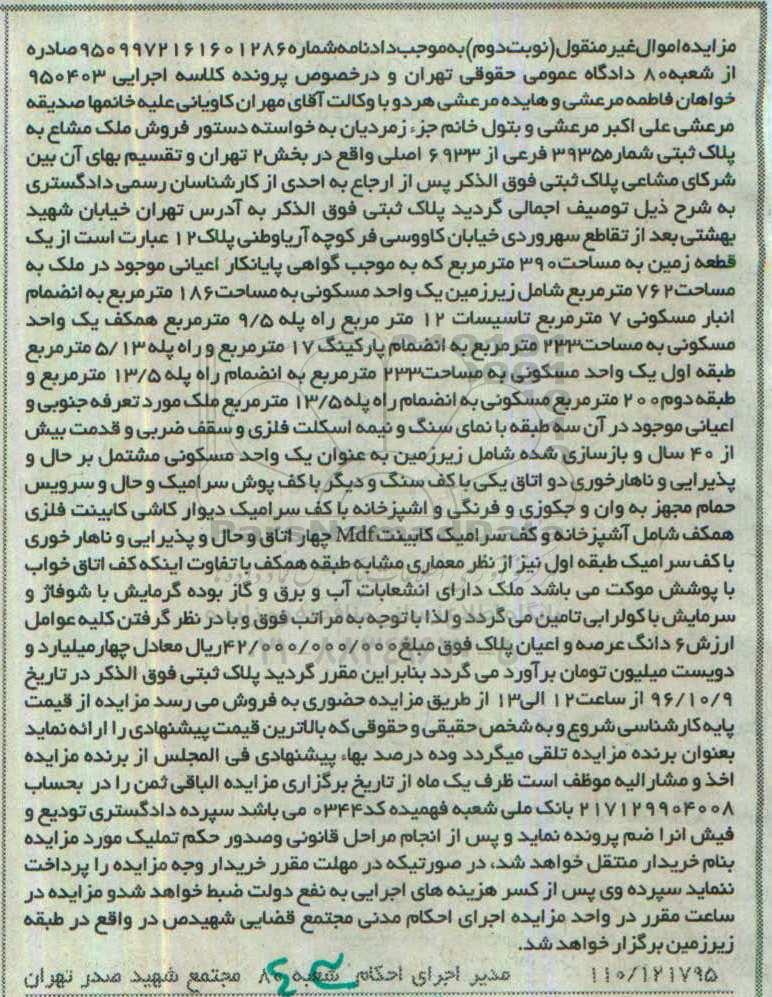 مزایده اموال غیر منقول(نوبت دوم) به موجب دادنامه شماره ۹۵۰۹۹۷۲۱۶۱۶۰۱۲۸۶ صادره
از شعبه ۸۰ دادگاه عمومی حقوقی تهران و درخصوص پرونده کلاسه اجرایی ۹۵۰۴۰۳
خواهان فاطمه مرعشی و هایده مرعشی هر دو با وکالت آقای مهران کاویانی علیه خانمها صدیقه
مرعشی علی اکبر مرعشی و بتول خانم جزء زمردیان به خواسته دستور فروش ملک مشاع به
پلاک ثبتی شماره ۳۹۳۵ فرعی از ۶۹۳۳ اصلی واقع در بخش ۲ تهران و تقسیم بهای آن بین
شرکای مشاعی پلاک ثبتی فوق الذکر پس از ارجاع به احدی از کارشناسان رسمی دادگستری
به شرح ذیل توصیف اجمالی گردید پلاک ثبتی فوق الذکر به آدرس تهران خیابان شهید
بهشتی بعد از تقاطع سهروردی خیابان کاووسی فر کوچه آریاوطنی پلاک ۱۲ عبارت است از یک
قطعه زمین به مساحت ۳۹۰ مترمربع که به موجب گواهی پایانکار اعیانی موجود در ملک به
مساحت ۷۶۲ مترمربع شامل زیرزمین یک واحد مسکونی به مساحت ۱۸۶ مترمربع به انضمام
انبار مسکونی ۷ مترمربع تاسیسات ۱۲ متر مربع راه پله ۹/۵ مترمربع همکف یک واحد
مسکونی به مساحت ۲۳۳ مترمربع به انضمام پارکینگ ۱۷ مترمربع و راه پله ۵/۱۳ مترمربع
طبقه اول یک واحد مسکونی به مساحت ۲۳۳ مترمربع به انضمام راه پله ۱۳/۵ مترمربع و
طبقه دوم ۲۰۰ مترمربع مسکونی به انضمام راه پله ۱۳/۵ مترمربع ملک مورد تعرفه جنوبی و
اعیانی موجود در آن سه طبقه با نمای سنگ و نیمه اسکلت فلزی و سقف ضربی و قدمت بیش
از ۴۰ سال و بازسازی شده شامل زیرزمین به عنوان یک واحد مسکونی مشتمل بر حال و
پذیرایی و ناهارخوری دو اتاق یکی با کف سنگ و دیگر با کف پوش سرامیک و حال و سرویس
حمام مجهز به وان و جکوزی و فرنگی و اشپزخانه با کف سرامیک دیوار کاشی کابینت فلزی
همکف شامل آشپزخانه و کف سرامیک کابینت Mdf چهار اتاق و حال و پذیرایی و ناهار خوری
با کف سرامیک طبقه اول نیز از نظر معماری مشابه طبقه همکف با تفاوت اینکه کف اتاق خواب
با پوشش موکت می باشد ملک دارای انشعابات آب و برق و گاز بوده گرمایش با شوفاژ و
سرمایش با کولر ابی تامین می گردد و لذا با توجه به مراتب فوق و با در نظر گرفتن کلیه عوامل
ارزش ۶ دانگ عرصه و اعیان پلاک فوق مبلغ ۴۲/۰۰۰/۰۰۰/۰۰۰ ریال معادل چهارمیلیارد و
دویست میلیون تومان برآورد می گردد بنابراین مقرر گردید پلاک ثبتی فوق الذکر در تاریخ
۹۶/۱۰/۹ از ساعت ۱۲ الی ۱۳ از طریق مزایده حضوری به فروش می رسد مزایده از قیمت
پایه کارشناسی شروع و به شخص حقیقی و حقوقی که بالاترین قیمت پیشنهادی را ارائه نماید
بعنوان برنده مزایده تلقی میگردد وده درصد بهاء پیشنهادی فی المجلس از برنده مزایده
اخذ و مشارالیه موظف است ظرف یک ماه از تاریخ برگزاری مزایده الباقی ثمن را در بحساب
۲۱۷۱۲۹۹۰۴۰۰۸ بانک ملی شعبه فهمیده کد ۰۳۴۴ می باشد سپرده دادگستری تودیع و
فیش انرا ضم پرونده نماید و پس از انجام مراحل قانونی وصدور حکم تملیک مورد مزایده
بنام خریدار منتقل خواهد شد، در صورتیکه در مهلت مقرر خریدار وجه مزایده را پرداخت
ننماید سپرده وی پس از کسر هزینه های اجرایی به نفع دولت ضبط خواهد شدو مزایده در
ساعت مقرر در واحد مزایده اجرای احکام مدنی مجتمع قضایی شهیدص در واقع در طبقه
زیرزمین برگزار خواهد شد.
۱۱۰/۱۲۱۷۹۵ مدیر اجرای احکام شعبه ۸۰ مجتمع شهید صدر تهران